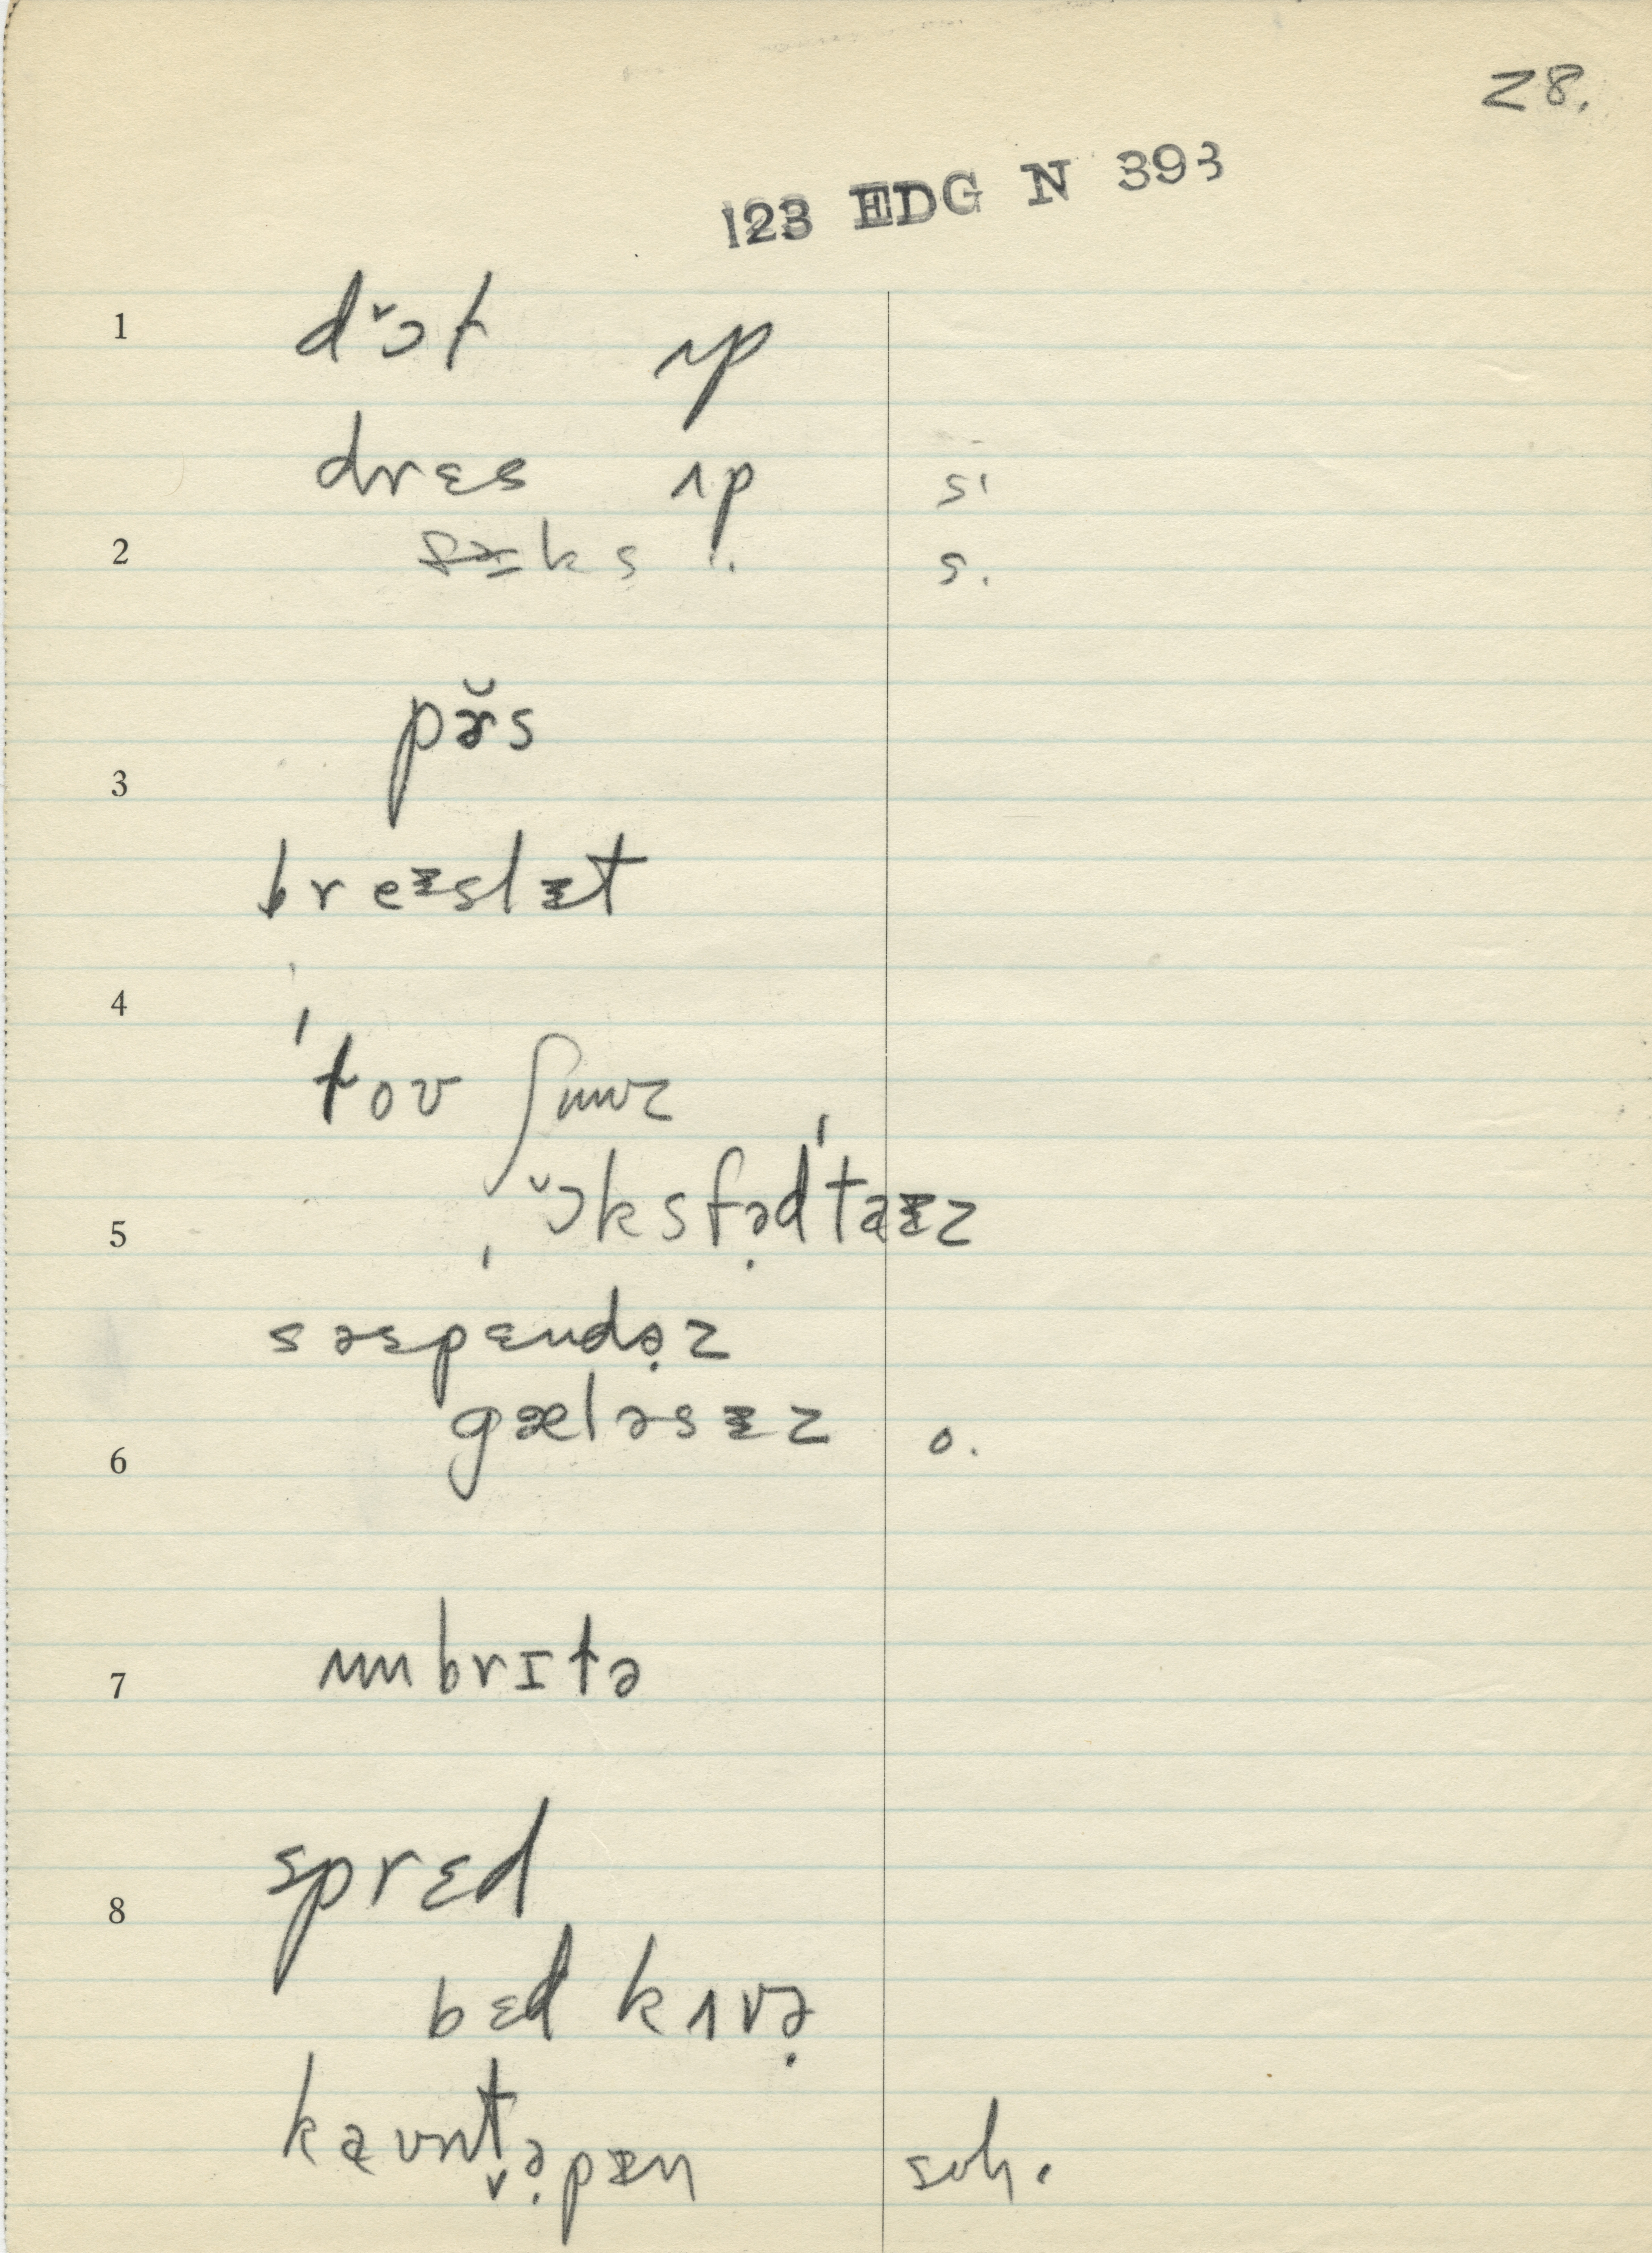 28.
123 EDG N 393
1 dɔ̌t ʌp
drɛs ʌp s'
2 s.
pə̆rs
3
breᵻslᵻt
4
'toʊ ʃuuz
ɔ̌ksfə̣d'taᵻz
5
səspɛndə̣z
gæləsᵻz o.
6
umbrɪtə
7
sprɛd
8
bɛd kʌvə̣
kaʊnt̬ə̣pᵻn soh.